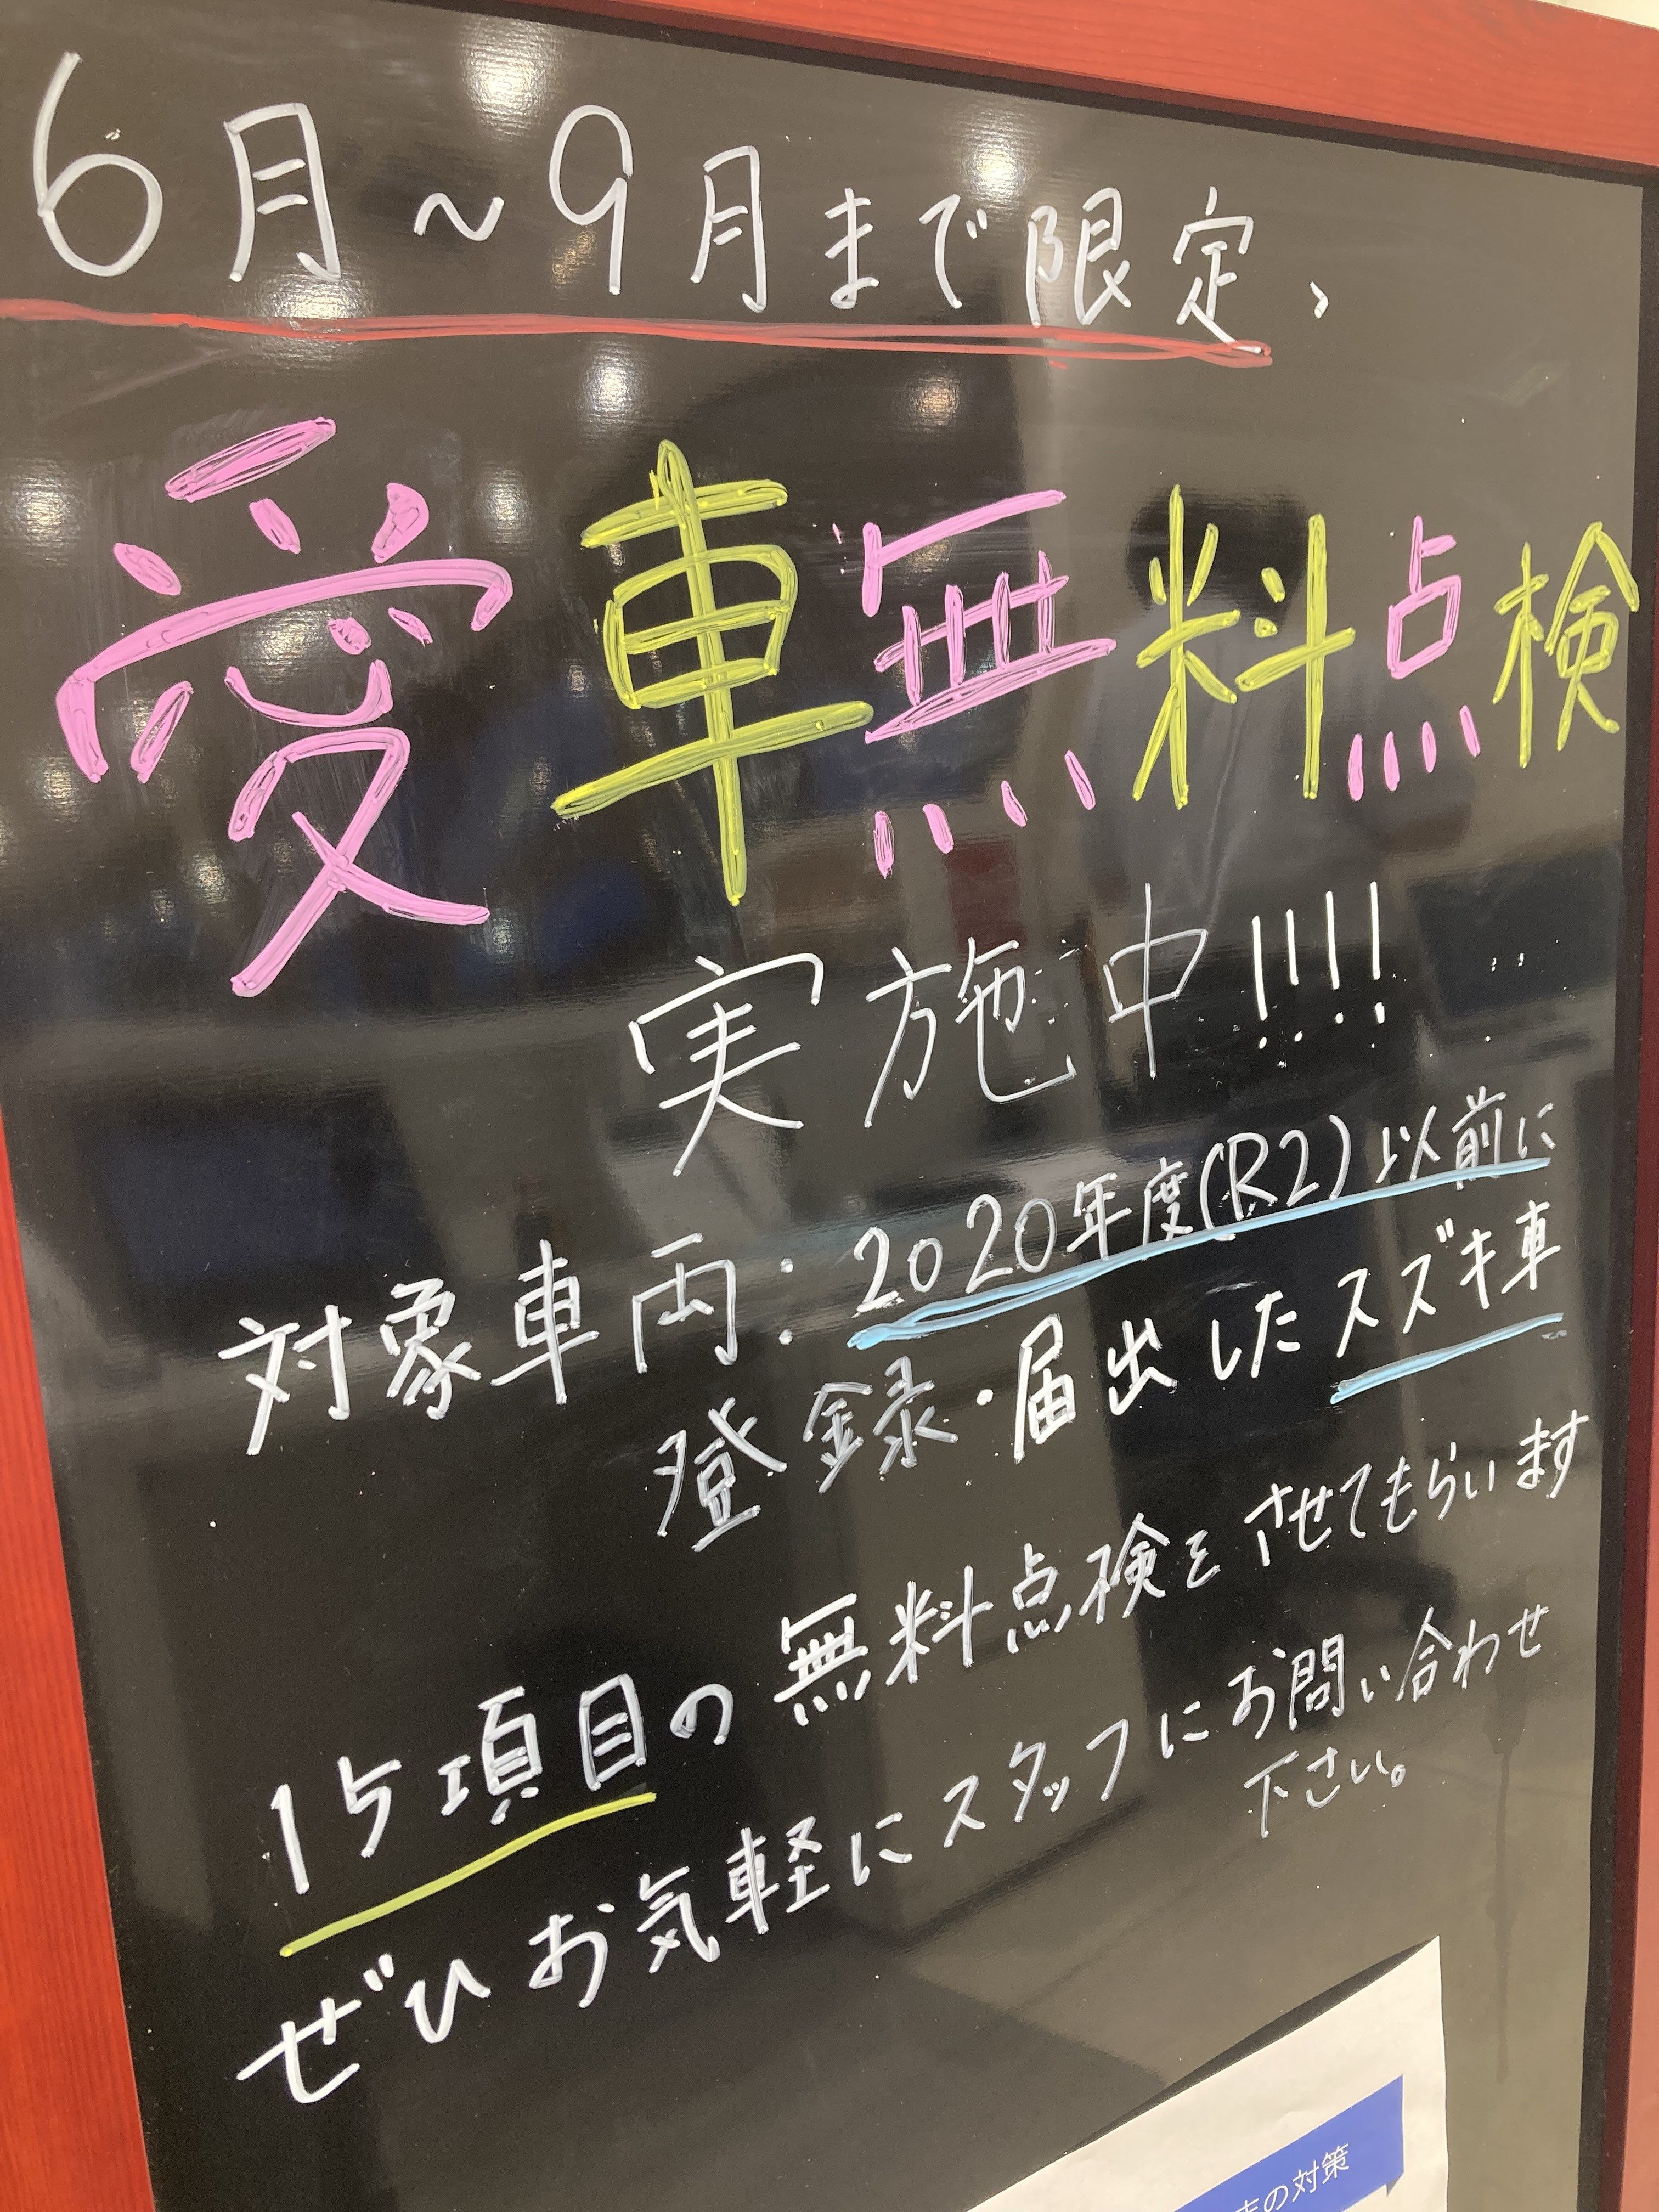 6月～9月まで限定、
愛車無料点検
実施中!!!!
対象車両：2020年度(R2)以前に
登録・届出したスズキ車
15項目の無料点検をさせてもらいます
ぜひお気軽にスタッフにお問い合わせ
下さい。
の対策